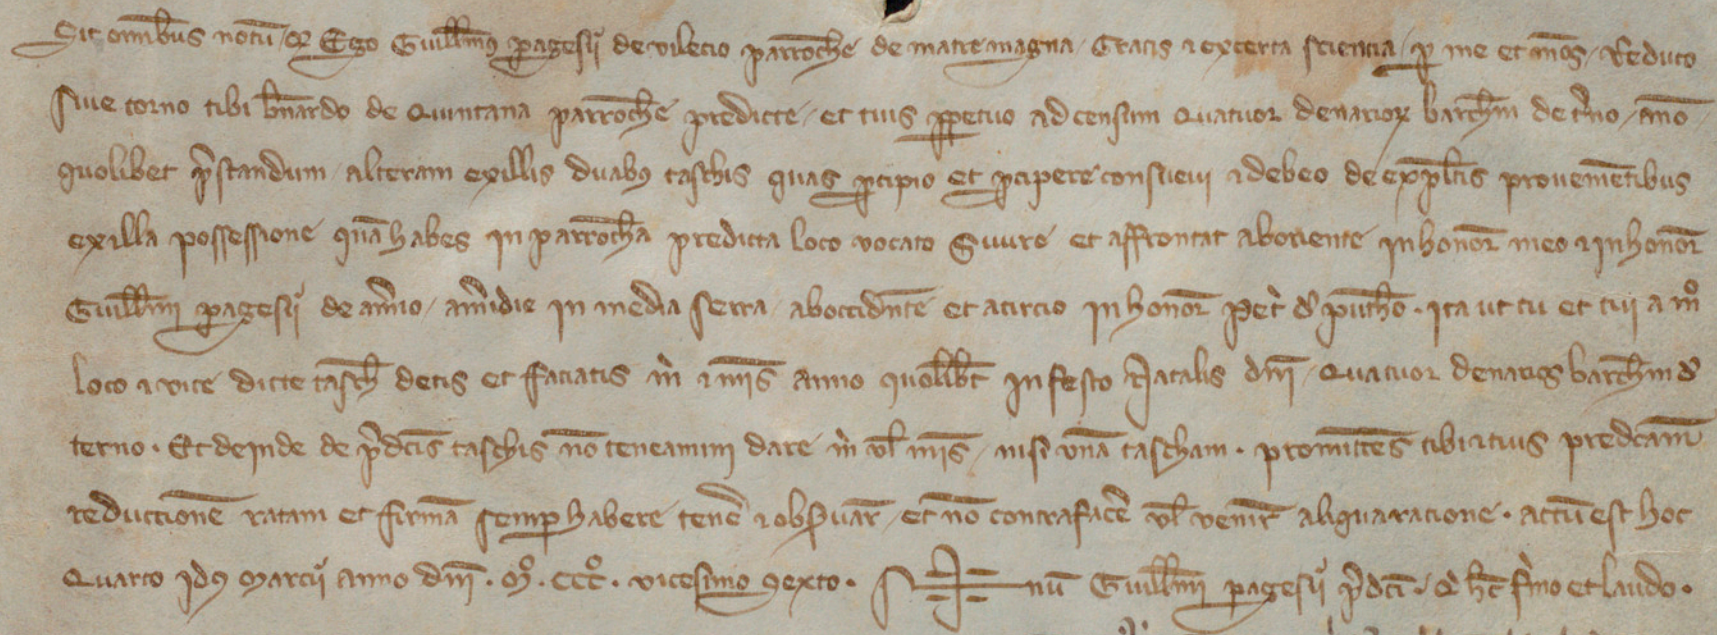 Sit om̄ibus notū qr̄ Ego Guillm̄s pagesij de vilecio parroch̄e de matre magna Gratis ⁊ ex certa sciencia p me et mōs Reduco
sive torno tibi b̄nardo de Quintana parroch̄e predicte et tuis ppetuo ad censum Quatuor denarioꝝ barch̄m de t̄no ān̄o
quolibet p̄standum alteram ex illis duabꝰ taschis quas pcipio et pcipere consuevi ⁊ debeo de exp̄ltis provenien̄tibus
ex illa possessione quā habes in parroch̄a predicta loco vocato Suure et affrontat ab oriente in honor̄ meo ⁊ in honor̄
Guillm̄i pagesij de am̄io a m̄idie in media serra ab occid̄nte et a circio in honor̄ Pet̄ d̄ puth̄o . ita ut tu et tui a mº
loco ⁊ vice dicte tasch̄ detis et faciatis m̄ ⁊ m̄is anno quolibt̄ in festo Natalis dn̄i Quatuor denarios barch̄m d̄
terno . Et deinde de p̄dc̄is taschis nō teneamini dare m̄ vl̄ m̄is nisi vnā tascham . promitēs tibi ⁊ tuis predc̄am
reductionē ratam et firmā semp habere tenē ⁊ obsvar̄ et nō contrafacē vl̄ venir̄ aliqua ratione . actū est hoc
Quarto jdꝰ Marcij anno dn̄i . Mº . CCCº . vicesimo sexto . S ╪ nū Guillm̄i pagesij p̄dc̄i . Q̄ hc̄ f̄mo et laudo .